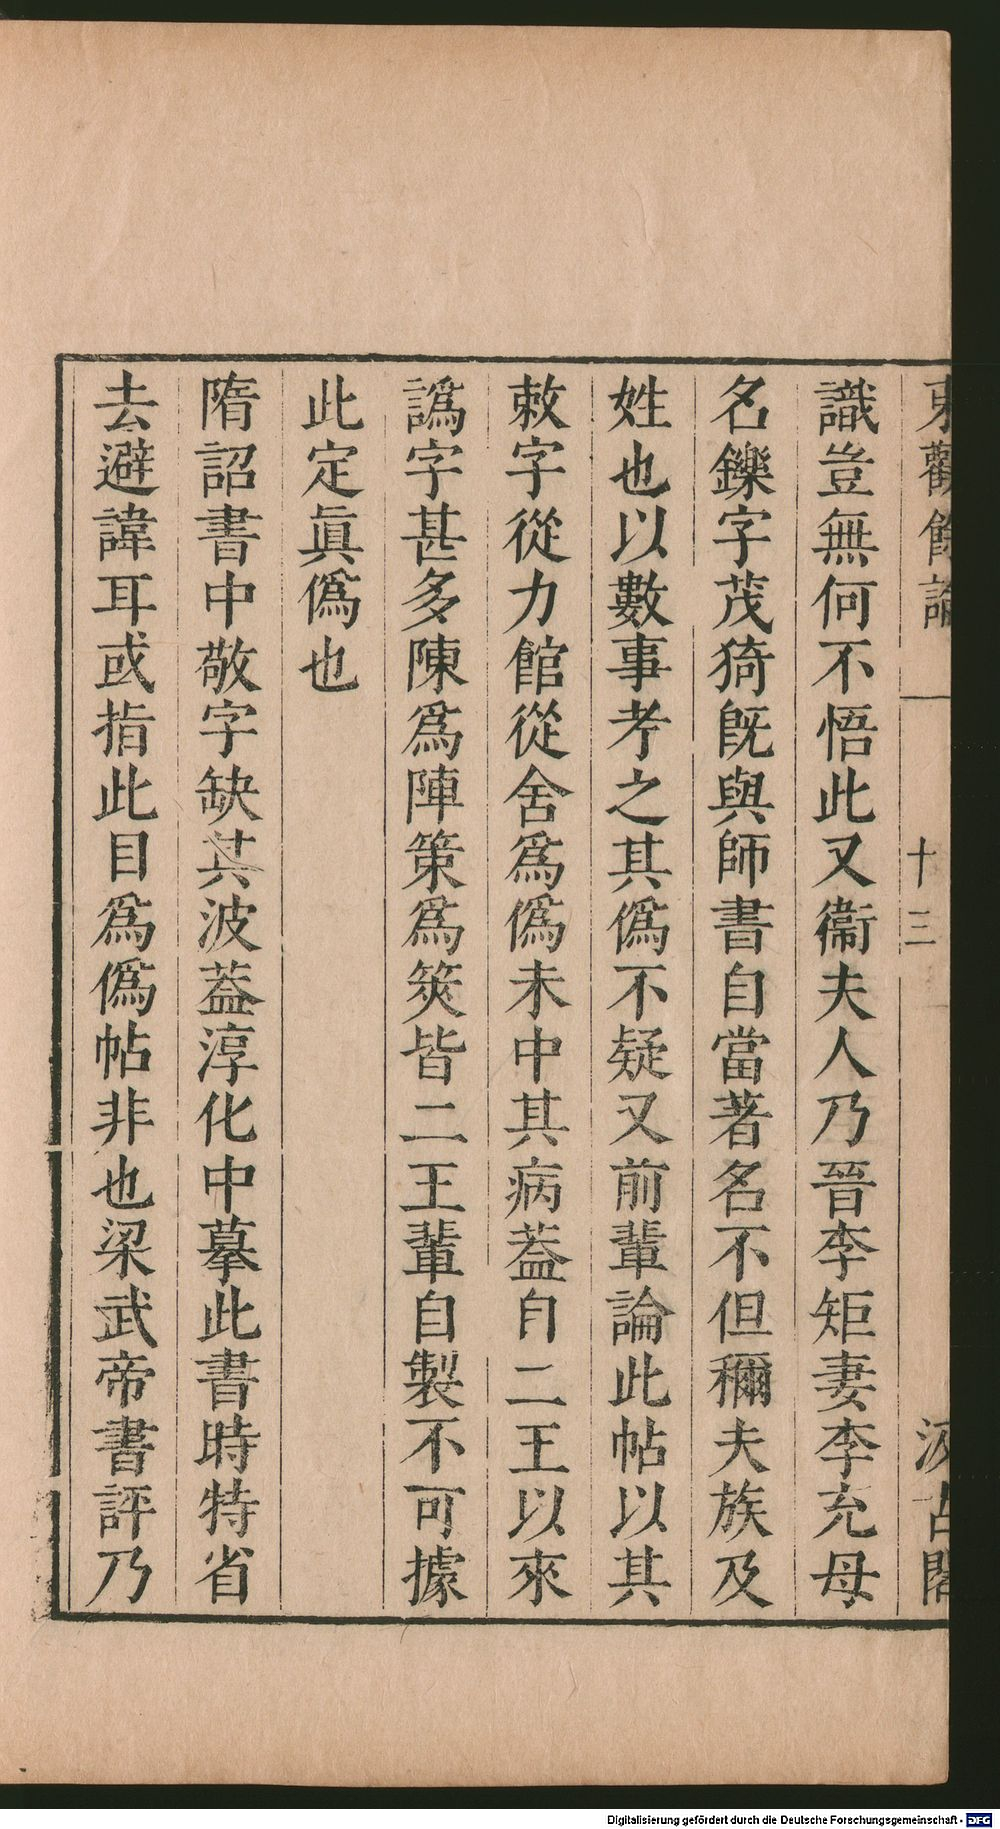 東觀餘論 一 十三 汲古閣
識豈無何不悟此又衞夫人乃晉李矩妻李充母
名鑠字茂猗既與師書自當著名不但稱夫族及
姓也以數事考之其僞不疑又前輩論此帖以其
敕字從力館從舍爲僞未中其病葢自二王以來
譌字甚多陳爲陣策爲筴皆二王輩自製不可據
此定眞僞也
隋詔書中敬字缺其波葢淳化中摹此書時特省
去避諱耳或指此目爲僞帖非也梁武帝書評乃
Digitalisierung gefördert durch die Deutsche Forschungsgemeinschaft - DFG